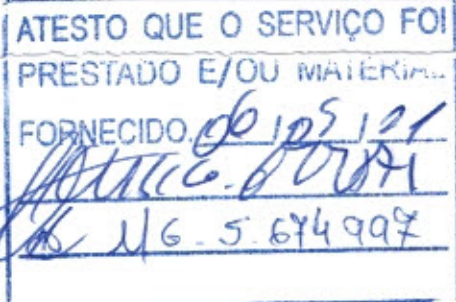 ATESTO QUE O SERVIÇO FOI
PRESTADO E/OU MATERIAL
FORNECIDO. 06/05/21
MG-5.674997